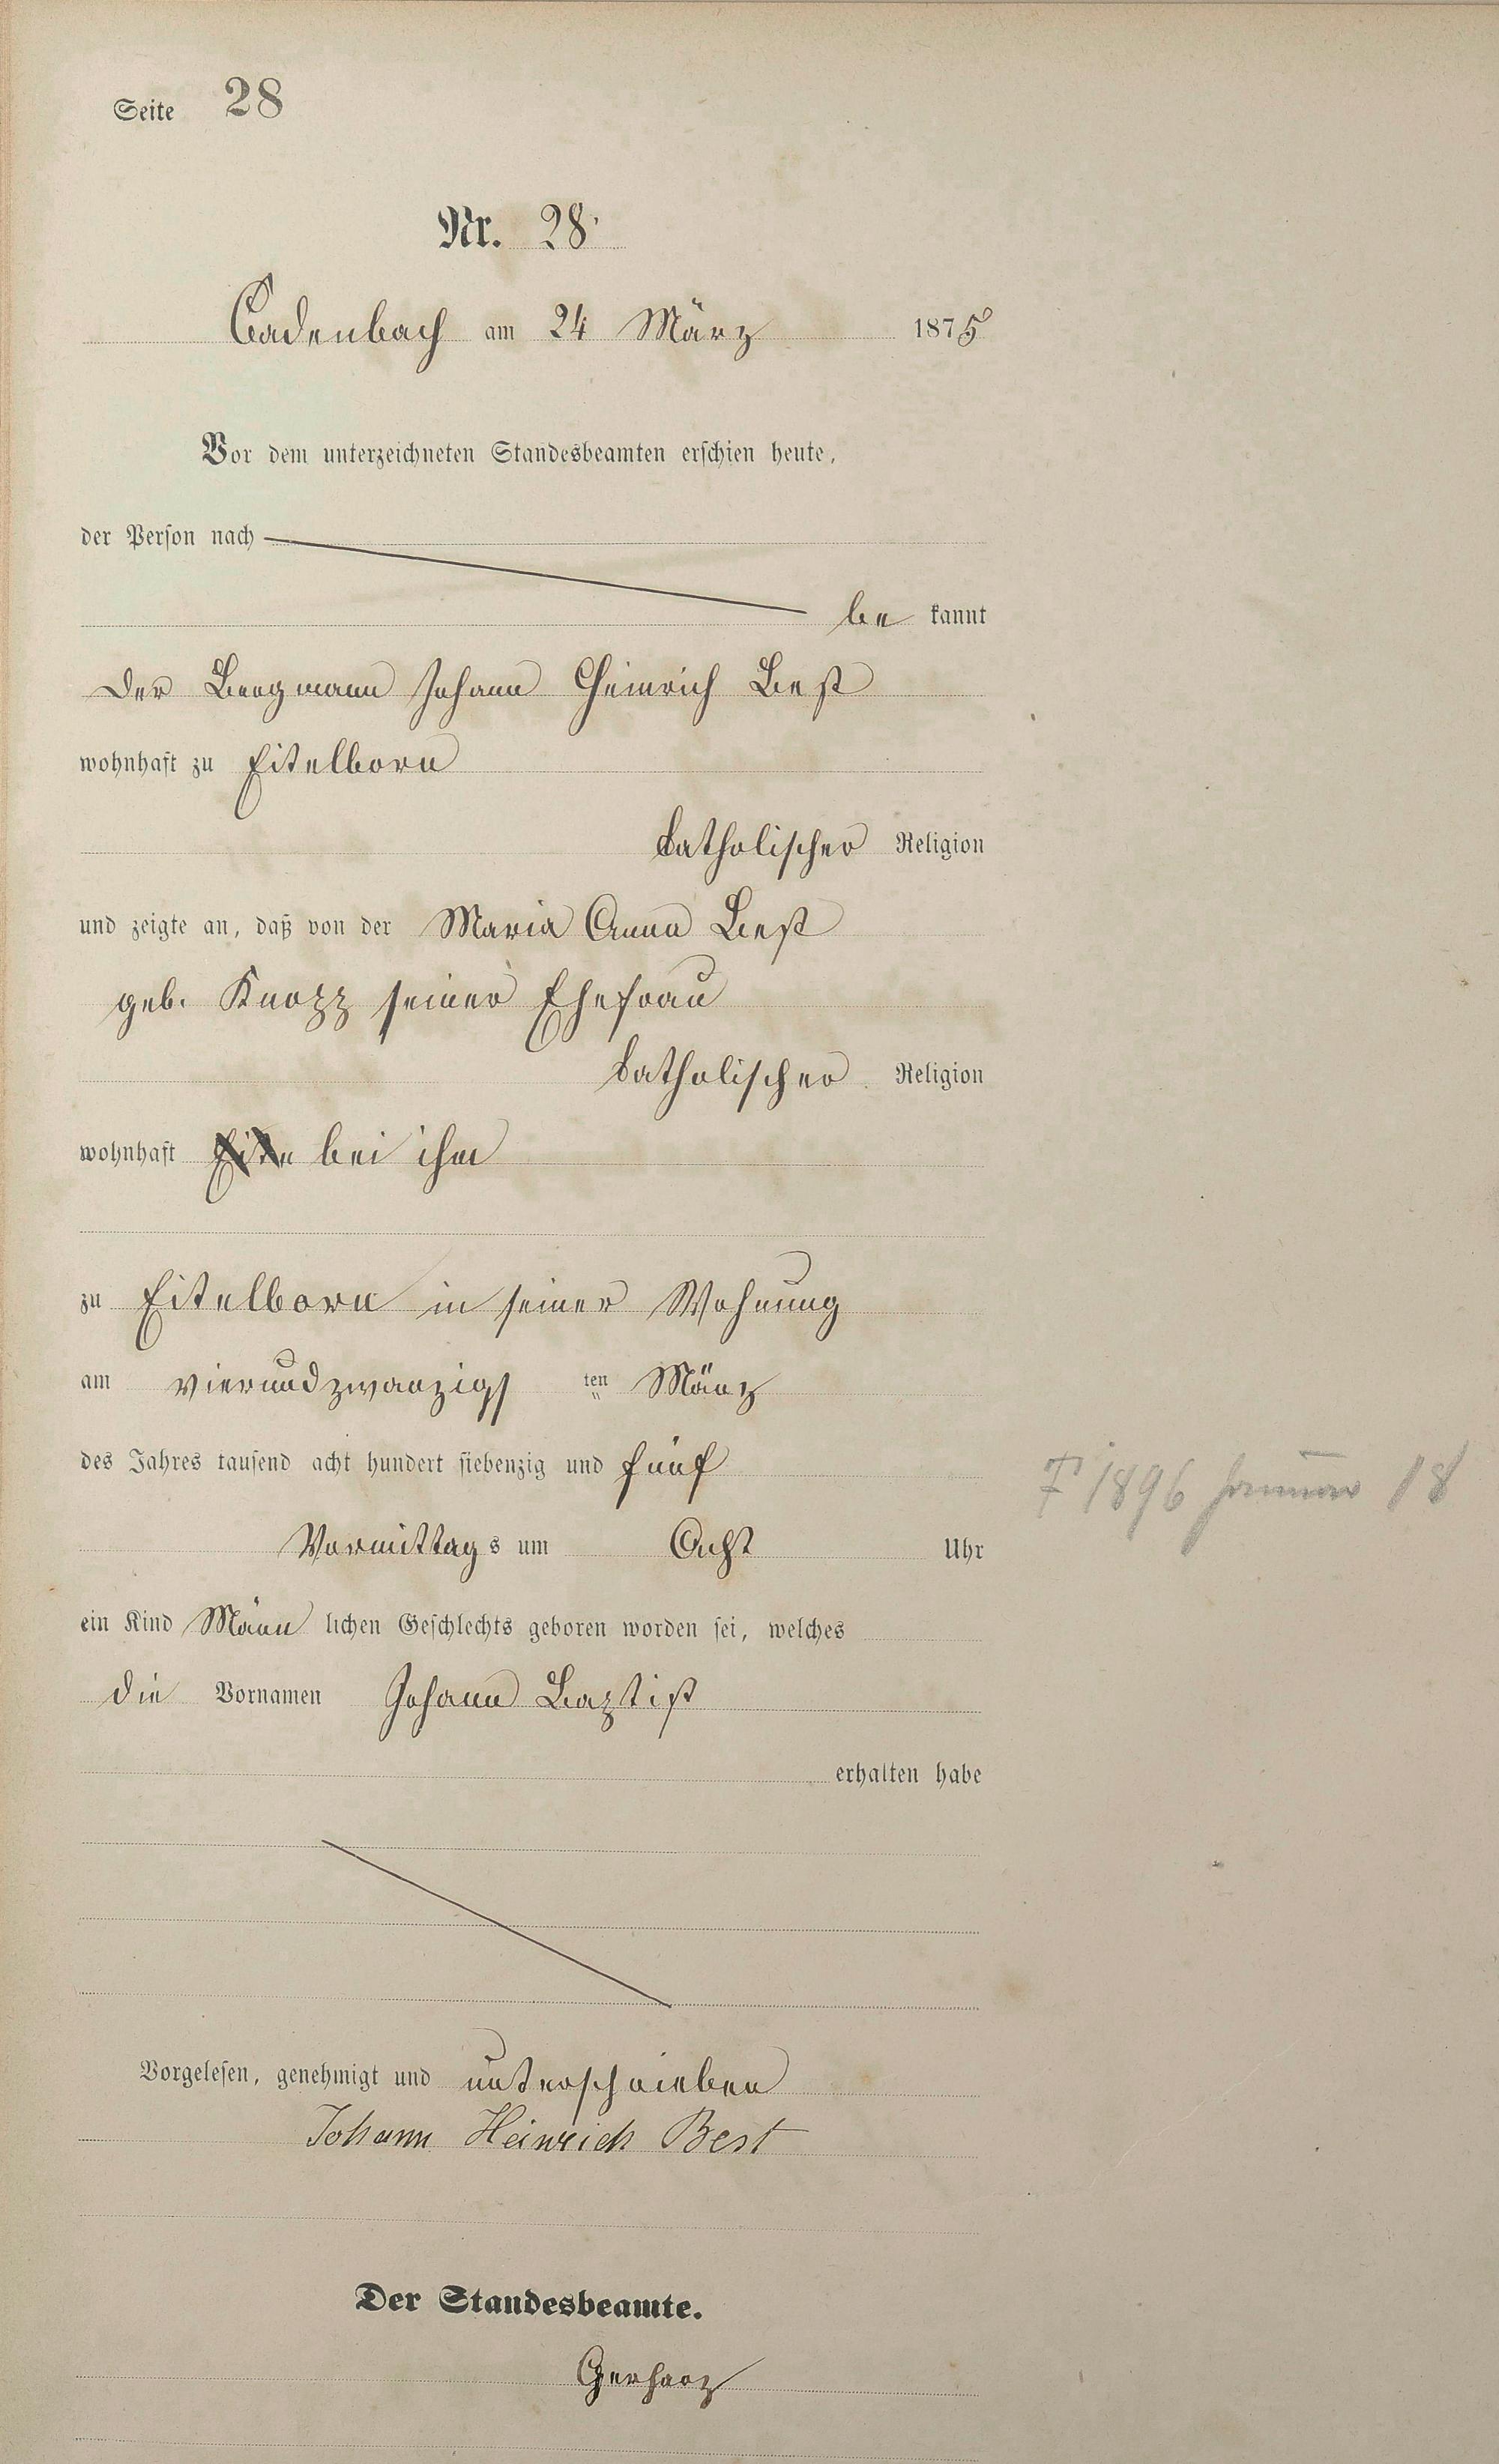 Seite 28
Nr. 28.
Cadenbach am 24 März 1875
Vor dem unterzeichneten Standesbeamten erschien heute,
der Person nach
be kannt
der Bergmann Johann Heinrich Best
wohnhaft zu Eitelborn
katholischer Religion
und zeigte an, daß von der Maria Anna Best
geb. Knopp seiner Ehefrau
katholischer Religion
wohnhaft Eite bei ihm
zu Eitelborn in seiner Wohnung
am vierundzwanzigs ten März
des Jahres tausend acht hundert siebenzig und fünf
† 1896 Januar 18
Vormittag s um Acht Uhr
ein Kind Männ lichen Geschlechts geboren worden sei, welches
die Vornamen Johann Baptist
erhalten habe
Vorgelesen, genehmigt und unterschrieben
Johann Heinrich Best
Der Standesbeamte.
Gerharz